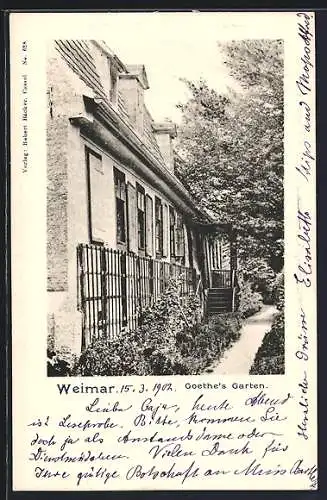 Verlag: Robert Bäcker, Cassel No 628.
Weimar. 15.3.1902. Goethe's Garten.
Liebe Caja, heute Abend
ist Leseprobe. Bitte, kommen Sie
doch ja als Anstandsdame oder
Dienstmädchen. Vielen Dank für
Ihre gütige Botschaft an
Herzliche Grüsse Elisabeth